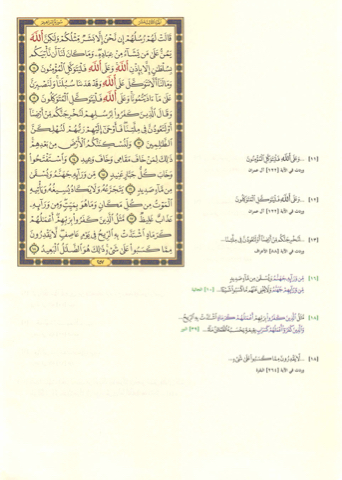 قَالَتْ لَهُمْ رُسُلُهُمْ إِن نَّحْنُ إِلَّا بَشَرٌ مِّثْلُكُمْ وَلَٰكِنَّ ٱللَّهَ
يَمُنُّ عَلَىٰ مَن يَشَآءُ مِنْ عِبَادِهِۦ وَمَا كَانَ لَنَآ أَن نَّأْتِيَكُم
بِسُلْطَٰنٍ إِلَّا بِإِذْنِ ٱللَّهِ وَعَلَى ٱللَّهِ فَلْيَتَوَكَّلِ ٱلْمُؤْمِنُونَ ١١
وَمَا لَنَآ أَلَّا نَتَوَكَّلَ عَلَى ٱللَّهِ وَقَدْ هَدَىٰنَا سُبُلَنَا وَلَنَصْبِرَنَّ
عَلَىٰ مَآ ءَاذَيْتُمُونَا وَعَلَى ٱللَّهِ فَلْيَتَوَكَّلِ ٱلْمُتَوَكِّلُونَ ١٢
وَقَالَ ٱلَّذِينَ كَفَرُوا۟ لِرُسُلِهِمْ لَنُخْرِجَنَّكُم مِّنْ أَرْضِنَآ
أَوْ لَتَعُودُنَّ فِى مِلَّتِنَا فَأَوْحَىٰٓ إِلَيْهِمْ رَبُّهُمْ لَنُهْلِكَنَّ
ٱلظَّٰلِمِينَ ١٣ وَلَنُسْكِنَنَّكُمُ ٱلْأَرْضَ مِنۢ بَعْدِهِمْ
ذَٰلِكَ لِمَنْ خَافَ مَقَامِى وَخَافَ وَعِيدِ ١٤ وَٱسْتَفْتَحُوا۟
وَخَابَ كُلُّ جَبَّارٍ عَنِيدٍ ١٥ مِّن وَرَآئِهِۦ جَهَنَّمُ وَيُسْقَىٰ مِن
مَّآءٍ صَدِيدٍ ١٦ يَتَجَرَّعُهُۥ وَلَا يَكَادُ يُسِيغُهُۥ وَيَأْتِيهِ
ٱلْمَوْتُ مِن كُلِّ مَكَانٍ وَمَا هُوَ بِمَيِّتٍ وَمِن وَرَآئِهِۦ
عَذَابٌ غَلِيظٌ ١٧ مَّثَلُ ٱلَّذِينَ كَفَرُوا۟ بِرَبِّهِمْ أَعْمَٰلُهُمْ
كَرَمَادٍ ٱشْتَدَّتْ بِهِ ٱلرِّيحُ فِى يَوْمٍ عَاصِفٍ لَّا يَقْدِرُونَ
مِمَّا كَسَبُوا۟ عَلَىٰ شَىْءٍ ذَٰلِكَ هُوَ ٱلضَّلَٰلُ ٱلْبَعِيدُ ١٨
٢٥٧
[١١] ...وَعَلَى ٱللَّهِ فَلْيَتَوَكَّلِ ٱلْمُؤْمِنُونَ
وردت في الآية [١٢٢] آل عمران
[١٢] ...وَعَلَى ٱللَّهِ فَلْيَتَوَكَّلِ ٱلْمُتَوَكِّلُونَ
وردت في الآية [١٢٢] آل عمران
[١٣] ...لَنُخْرِجَنَّكُم مِّنْ أَرْضِنَآ أَوْ لَتَعُودُنَّ فِى مِلَّتِنَا...
وردت في الآية [٨٨] الأعراف
[١٦] مِّن وَرَآئِهِۦ جَهَنَّمُ وَيُسْقَىٰ مِن مَّآءٍ صَدِيدٍ
مِّن وَرَآئِهِمْ جَهَنَّمُ وَلَا يُغْنِى عَنْهُم مَّا كَسَبُوا۟ شَيْـًٔا... [١٠] الجاثية
[١٨] مَّثَلُ ٱلَّذِينَ كَفَرُوا۟ بِرَبِّهِمْ أَعْمَٰلُهُمْ كَرَمَادٍ ٱشْتَدَّتْ بِهِ ٱلرِّيحُ...
وَٱلَّذِينَ كَفَرُوٓا۟ أَعْمَٰلُهُمْ كَسَرَابٍۭ بِقِيعَةٍ يَحْسَبُهُ ٱلظَّمْـَٔانُ مَآءً... [٣٩] النور
[١٨] ...لَّا يَقْدِرُونَ مِمَّا كَسَبُوا۟ عَلَىٰ شَىْءٍ...
وردت في الآية [٢٦٤] البقرة